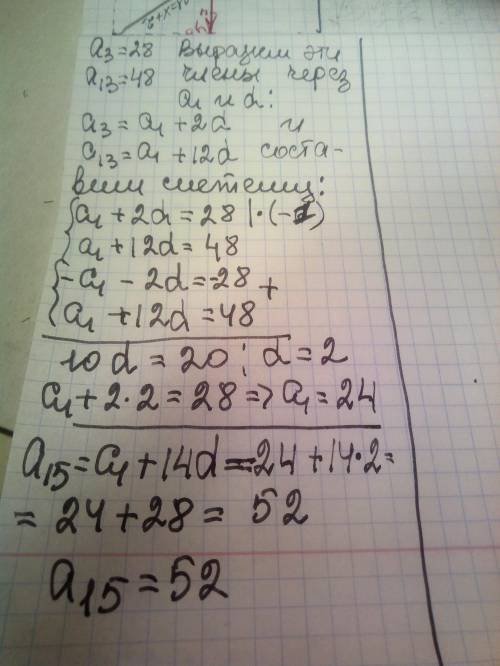 a₃=28 Выразим эти
a₁₃=48 члены через
a₁ и d:
a₃ = a₁ + 2d и
a₁₃ = a₁ + 12d соста-
вим систему:
{a₁ + 2d = 28 |·(-1)
a₁ + 12d = 48
{-a₁ - 2d = -28 +
a₁ + 12d = 48
10d = 20; d = 2
a₁ + 2·2 = 28 => a₁ = 24
a₁₅ = a₁ + 14d = 24 + 14·2 =
= 24 + 28 = 52
a₁₅ = 52